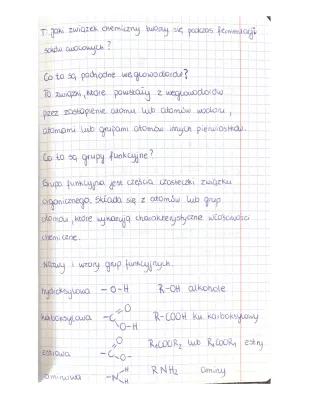 T: Jaki związek chemiczny tworzy się podczas fermentacji
soków owocowych?
Co to są pochodne węglowodorów?
To związki, które powstały z węglowodorów
przez zastąpienie atomu lub atomów wodoru,
atomami lub grupami atomów innych pierwiastków.
Co to są grupy funkcyjne?
Grupa funkcyjna jest częścią cząsteczki związku
organicznego. Składa się z atomów lub grup
atomów, które wykazują charakterystyczne właściwości
chemiczne.
Nazwy i wzory grup funkcyjnych.
hydroksylowa -O-H R-OH alkohole
karboksylowa -C=O O-H R-COOH kw. karboksylowy
estrowa -C=O O- R₁COOR₂ lub R₁COOR₁ estry
aminowa -N H H R NH₂ aminy